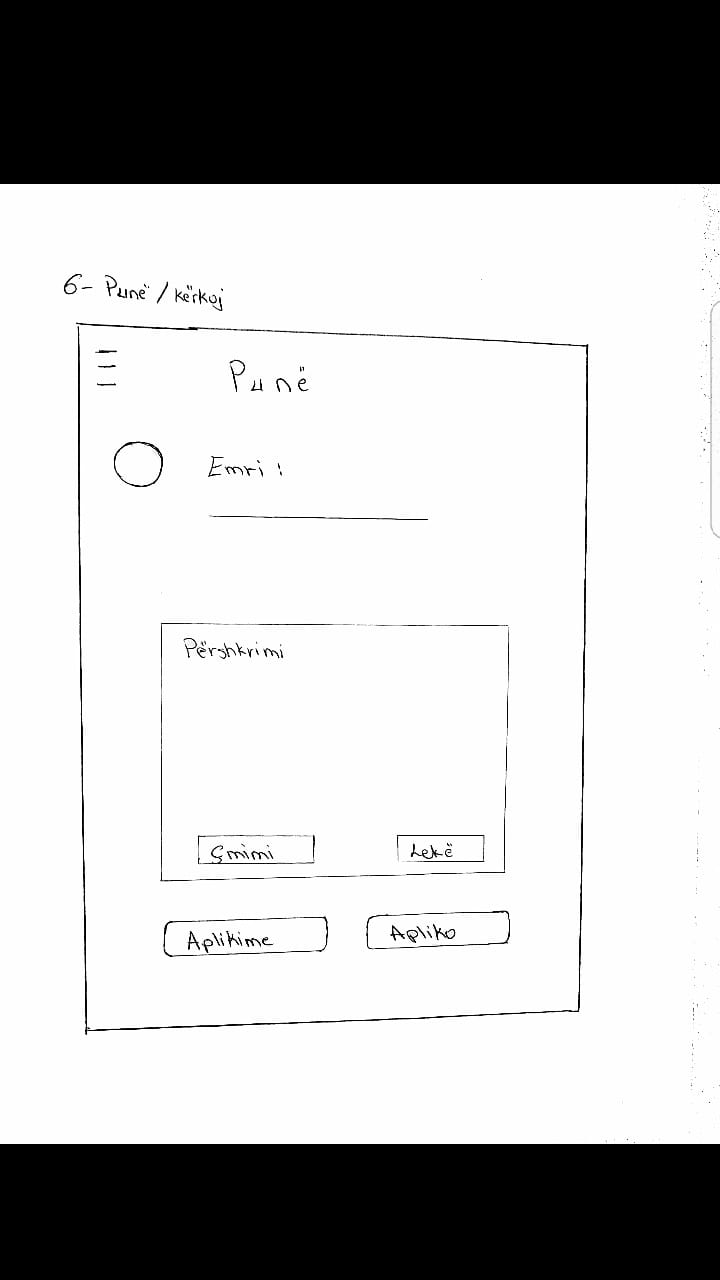 6- Punë / kërkoj
Punë
Emri :
Përshkrimi
Çmimi
Lekë
Aplikime
Apliko